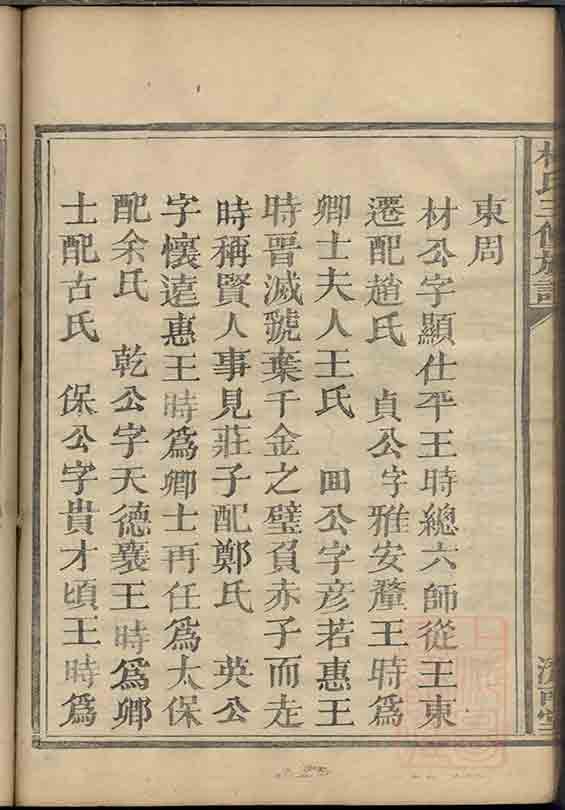 東周
材公字顯仕平王時總六師從王東
遷配趙氏 貞公字雅安釐王時爲
卿士夫人王氏 回公字彦若惠王
時晋滅虢棄千金之璧負赤子而走
時稱賢人事見莊子配鄭氏 英公
字懷遠惠王時爲卿士再任爲太保
配余氏 乾公字天德襄王時爲卿
士配古氏 保公字貴才頃王時爲
氏三修族譜